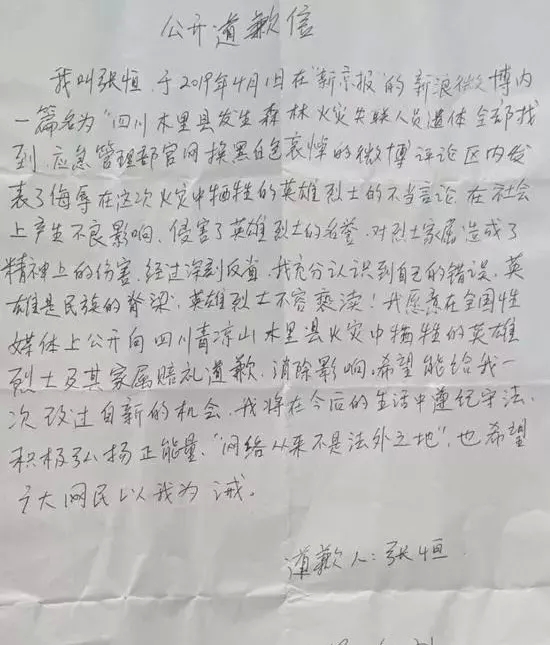 公开道歉信
我叫张恒,于2019年4月1日在"新京报"的新浪微博内
一篇名为"四川木里县发生森林火灾失联人员遗体全部找
到,应急管理部官网换黑白色哀悼的微博"评论区内发
表了侮辱在这次火灾中牺牲的英雄烈士的不当言论,在社会
上产生不良影响,侵害了英雄烈士的名誉,对烈士家属造成了
精神上的伤害,经过深刻反省,我充分认识到自己的错误,英
雄是民族的脊梁,英雄烈士不容亵渎!我愿意在全国性
媒体上公开向四川省凉山木里县火灾中牺牲的英雄
烈士及其家属赔礼道歉,消除影响,希望能给我一
次改过自新的机会,我将在今后的生活中遵纪守法,
积极弘扬正能量,"网络从来不是法外之地",也希望
广大网民以我为诫。
道歉人:张恒